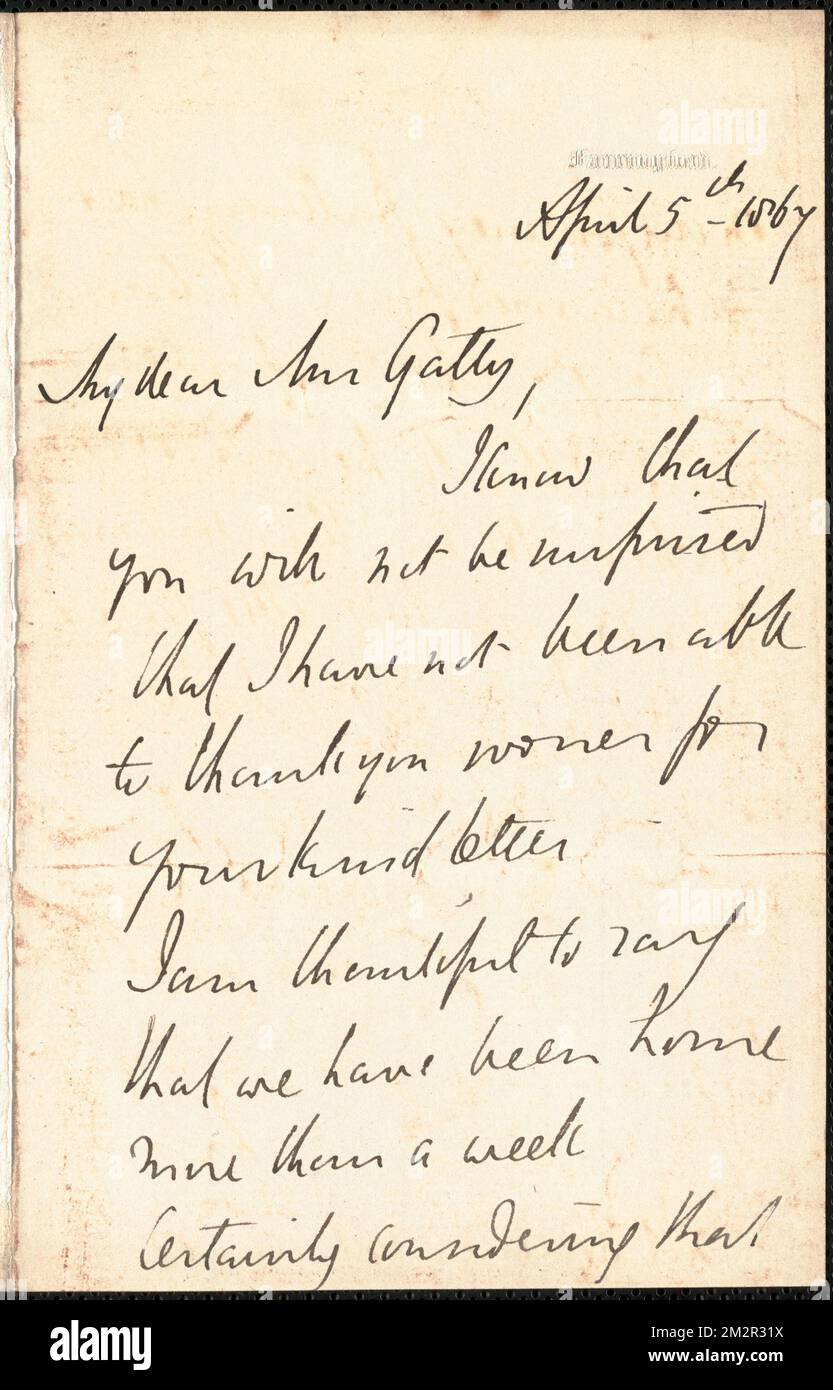 Farringford.
April 5th – 1867
My dear Mrs Gatty,
I know that
you will not be surprised
that I have not been able
to thank you sooner for
your kind letter
I am thankful to say
that we have been home
more than a week
Certainly considering that
alamy
Image ID: 2M2R31X
www.alamy.com